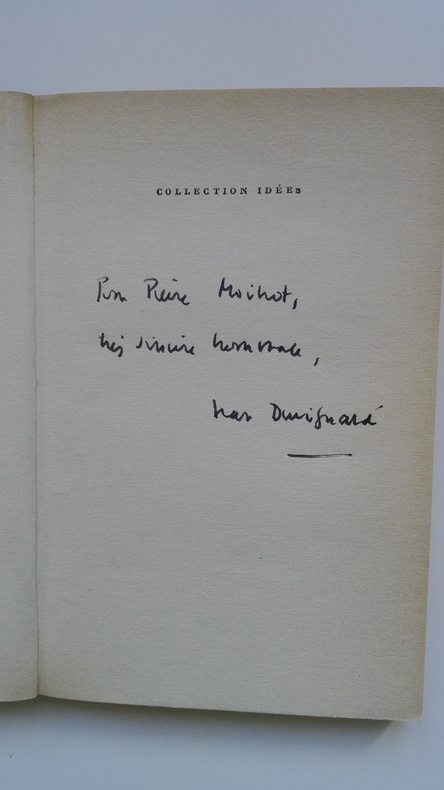 COLLECTION IDÉES
Pour Pierre Moinot,
très sincère hommage,
Jean Duvignaud